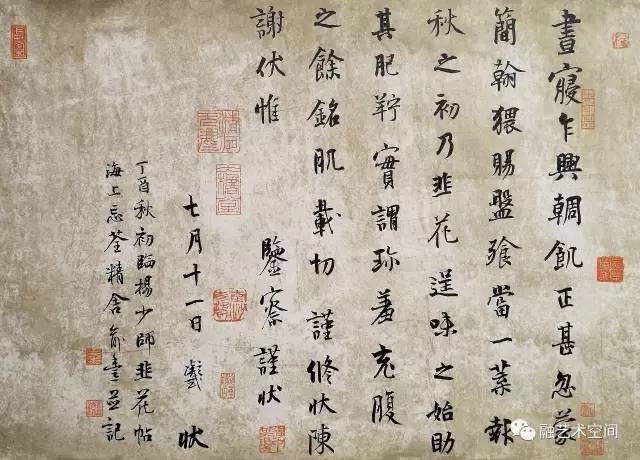 晝寢乍興輖飢正甚忽蒙
簡翰猥賜盤飧當一葉報
秋之初乃韭花逞味之始助
其肥羜實謂珍羞充腹
之餘銘肌載切謹修狀陳
謝伏惟 鑒察謹狀
七月十一日 凝式 狀
丁酉秋初臨楊少師韭花帖
海上忘荃精舍俞豐並記
融艺术空间